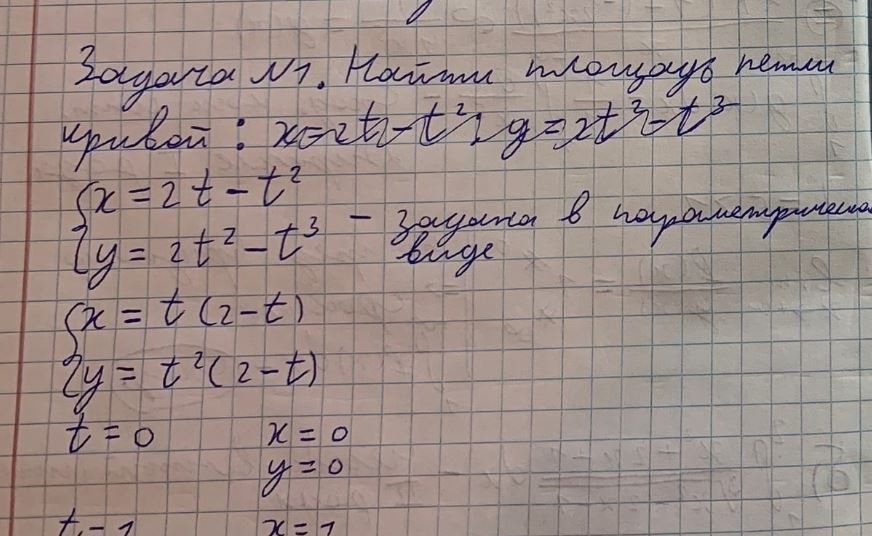 Задача №1. Найти площадь петли
кривой: x=2t-t², y=2t²-t³
{x = 2t - t²
{y = 2t² - t³ - задана в параметрическом
виде
{x = t(2-t)
{y = t²(2-t)
t = 0 x = 0
y = 0
t = 1 x = 1